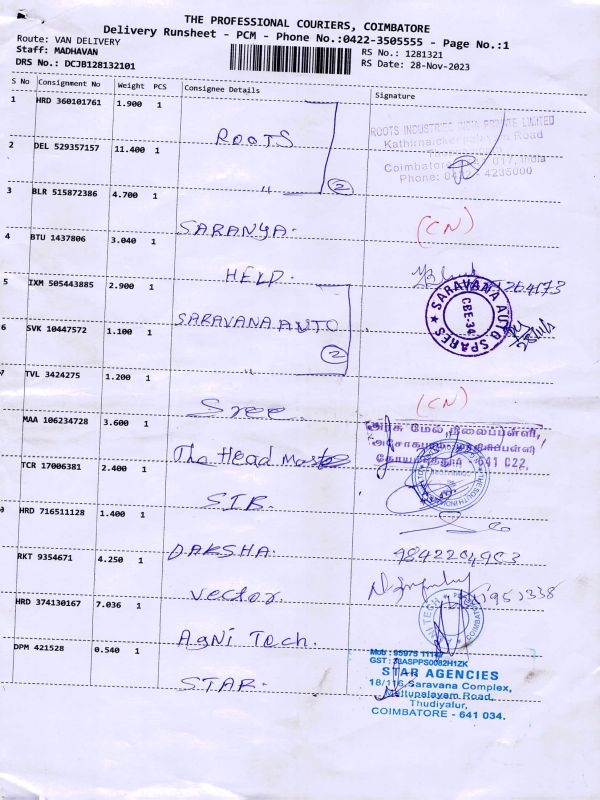 THE PROFESSIONAL COURIERS, COIMBATORE
Delivery Runsheet - PCM - Phone No.:0422-3505555 - Page No.:1
Route: VAN DELIVERY
RS No.: 1281321
Staff: MADHAVAN
RS Date: 28-Nov-2023
DRS No.: DCJB128132101
S No Consignment No Weight PCS Consignee Details Signature
1 HRD 360101761 1.900 1
ROOTS
ROOTS INDUSTRIES INDIA PRIVATE LIMITED
Road
Coimbatore India
Phone: 4235000
2 DEL 529357157 11.400 1
" 2
3 BLR 515872386 4.700 1
SARANYA.
(CN)
4 BTU 1437806 3.040 1
HELP.
5 IXM 505443885 2.900 1
SARAVANA AUTO
2
SARAVANA AUTO SPARES
CBE-34
6 SVK 10447572 1.100 1
"
TVL 3424275 1.200 1
Sree.
(CN)
MAA 106234728 3.600 1
The Head
அரசு மேல் நிலைப்பள்ளி,
641 022,
TCR 17006381 2.400 1
STB.
HRD 716511128 1.400 1
DAKSHA.
9842204903
RKT 9354671 4.250 1
Vector.
HRD 374130167 7.036 1
Agni Tech.
DPM 421528 0.540 1
STAR.
Mob : 95975 11147
GST : 33ASPPS0082H1ZK
STAR AGENCIES
18/116, Saravana Complex,
Mettupalayam Road,
Thudiyalur,
COIMBATORE - 641 034.